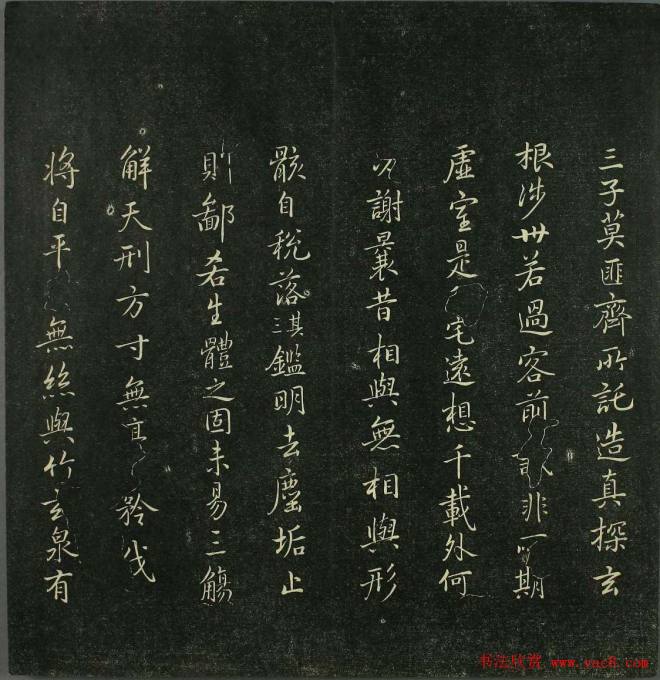 三子莫匪齊所託造真探玄
根涉世若過客前非所期
虛室是宅遠想千載外何
必謝曩昔相與無相與形
骸自税落其三鑑明去塵垢止
則鄙吝生體之固未易三觴
解天刑方寸無矜伐
將自平無絲與竹玄泉有
书法欣赏 www.yac8.com